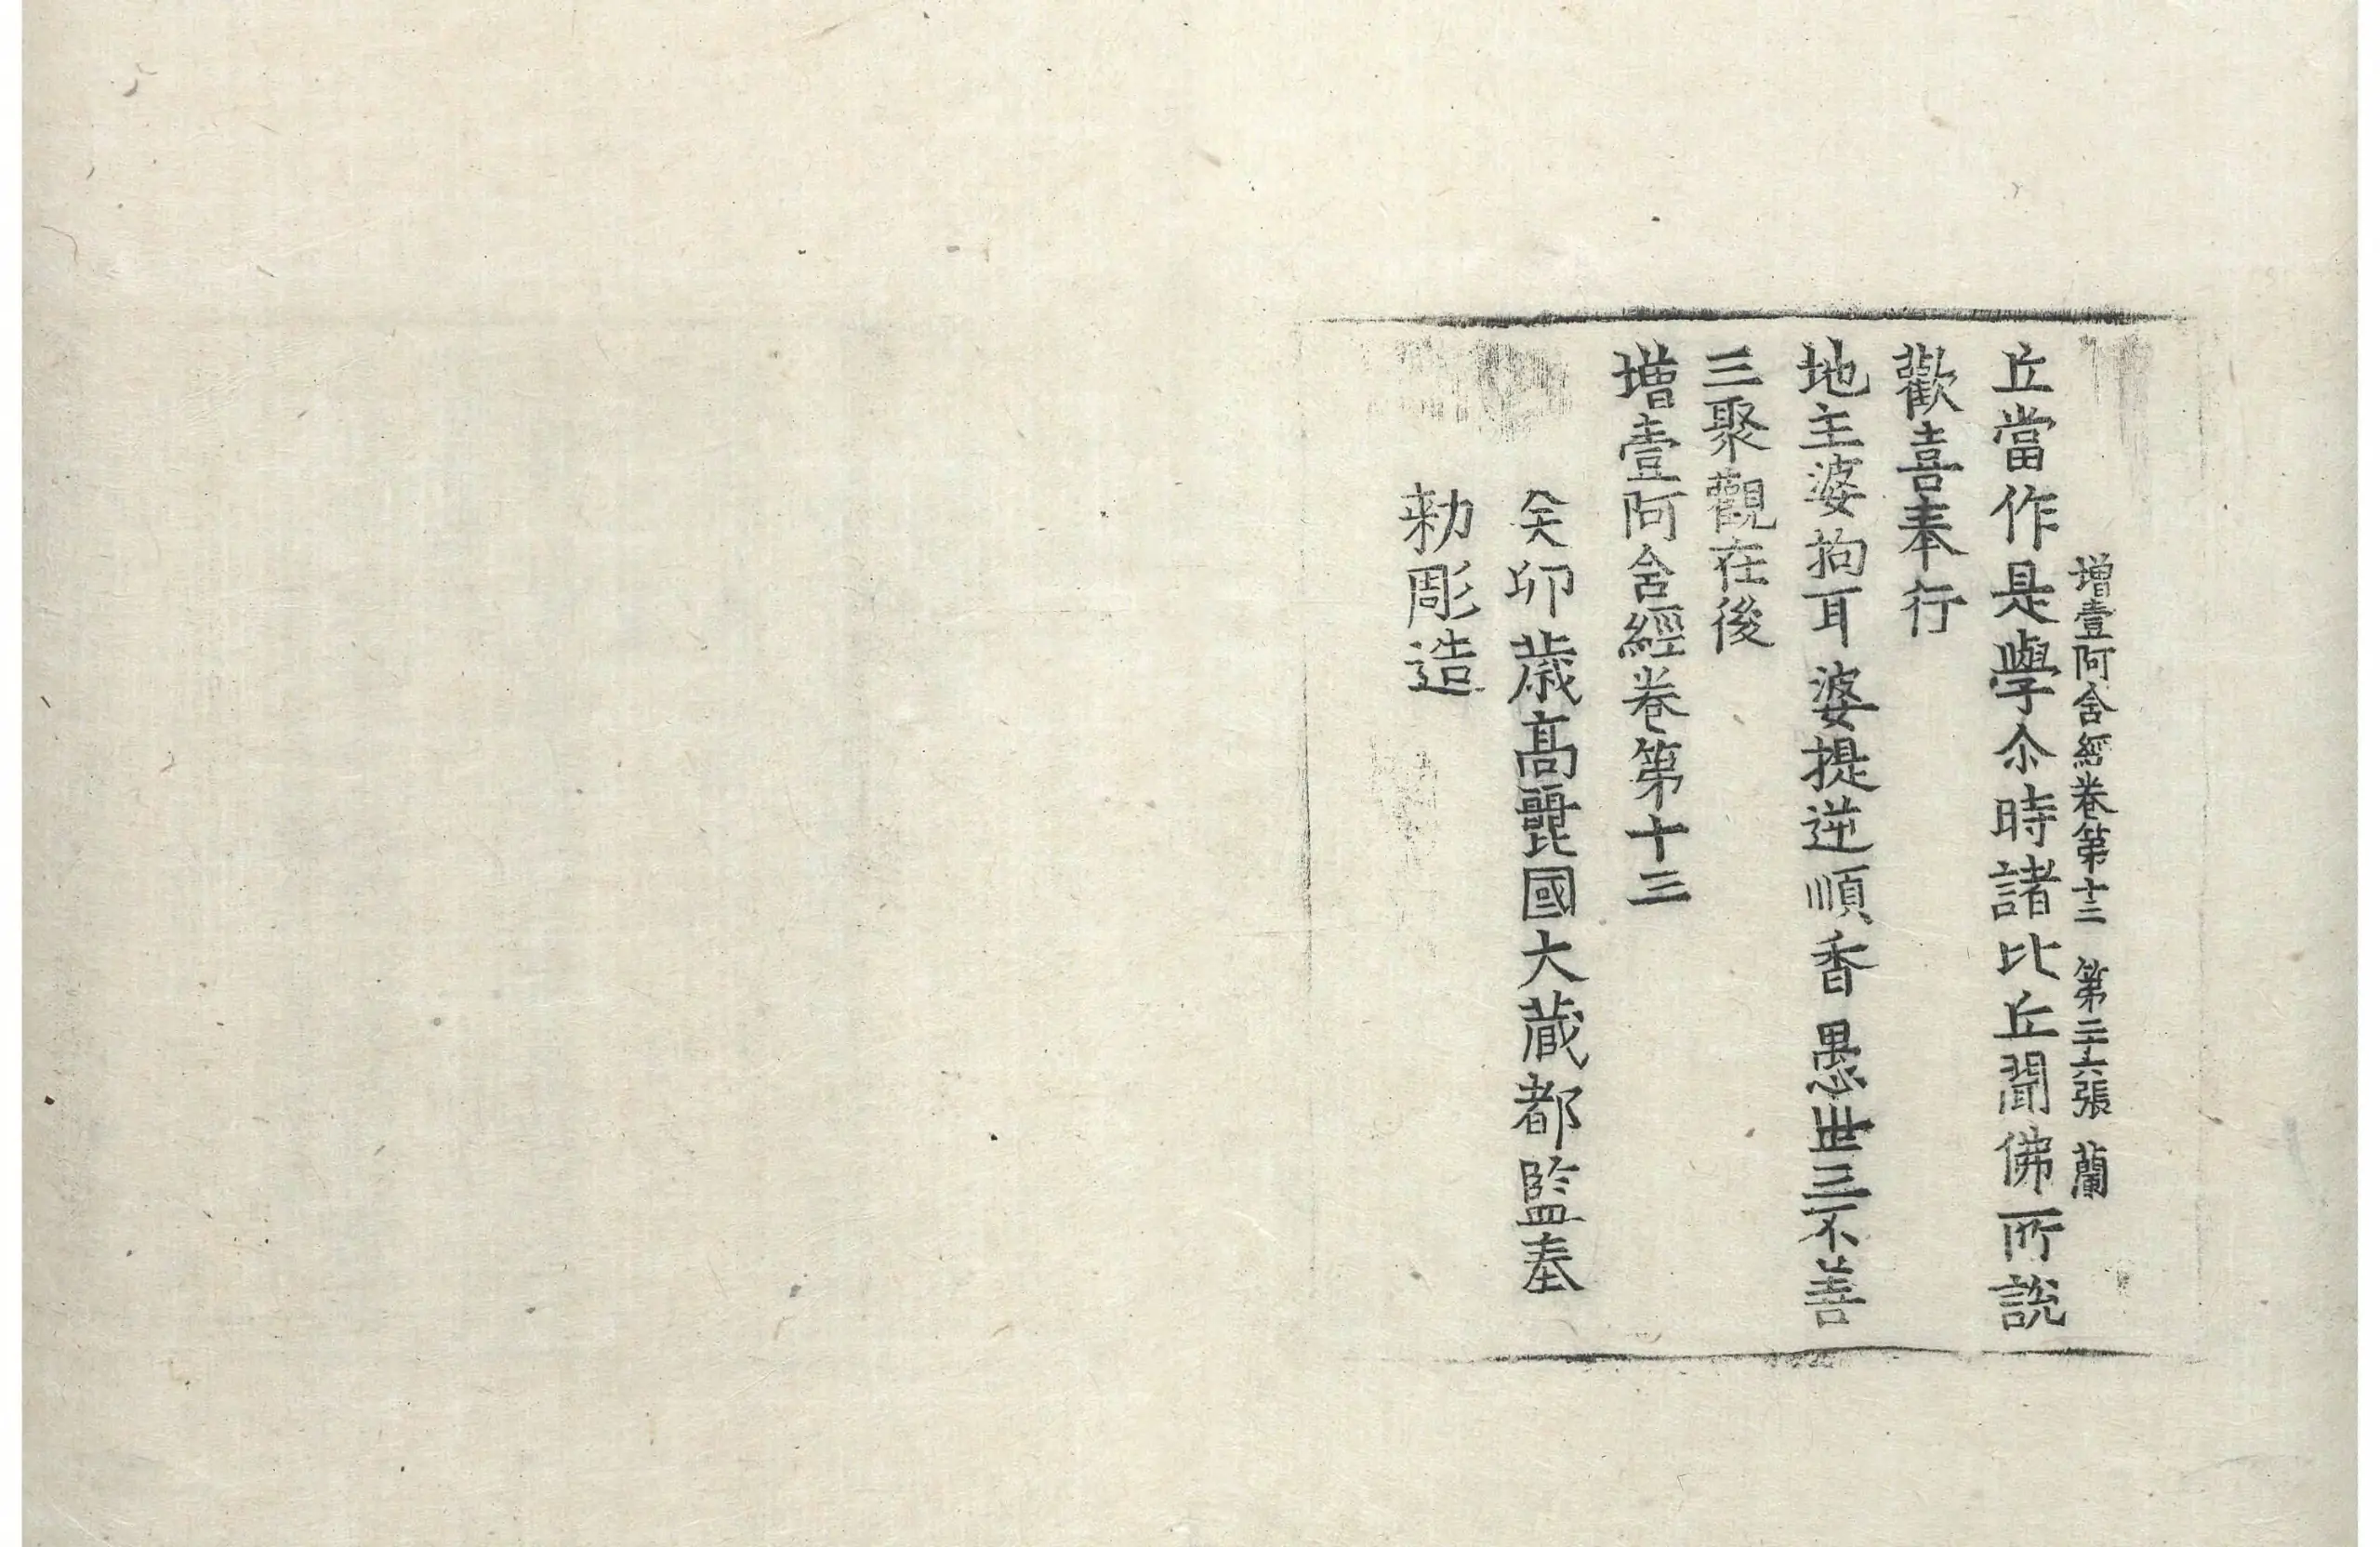 增壹阿含經卷第十三 第二十六張 蘭
丘當作是學尒時諸比丘聞佛所說
歡喜奉行
地主婆拘耳 婆提逆順香 愚世三不善
三聚觀在後
增壹阿含經卷第十三
癸卯歲高麗國大藏都監奉
勑彫造